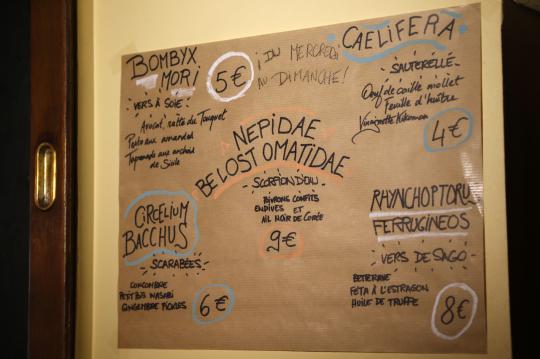 BOMBYX
MORI
5€
VERS À SOIE :
Avocat, ratte du Touquet
Pesto aux amandes
Tapenade aux anchois
de Sicile
¡ DU MERCREDI
AU DIMANCHE !
CAELIFERA
SAUTERELLE
Oeuf de caille mollet
Feuille d'huître
Vinaigrette Kikoman
4€
NEPIDAE
BELOSTOMATIDAE
SCORPION D'EAU
POIVRONS CONFITS
ENDIVES ET
AIL NOIR DE CORÉE
9€
CIRCELIUM
BACCHUS
SCARABÉES
CONCOMBRE
PETIT POIS WASABI
GINGEMBRE PICKLES
6€
RHYNCHOPTORUS
FERRUGINEOS
VERS DE SAGO
BETTERAVE
FETA À L'ESTRAGON
HUILE DE TRUFFE
8€